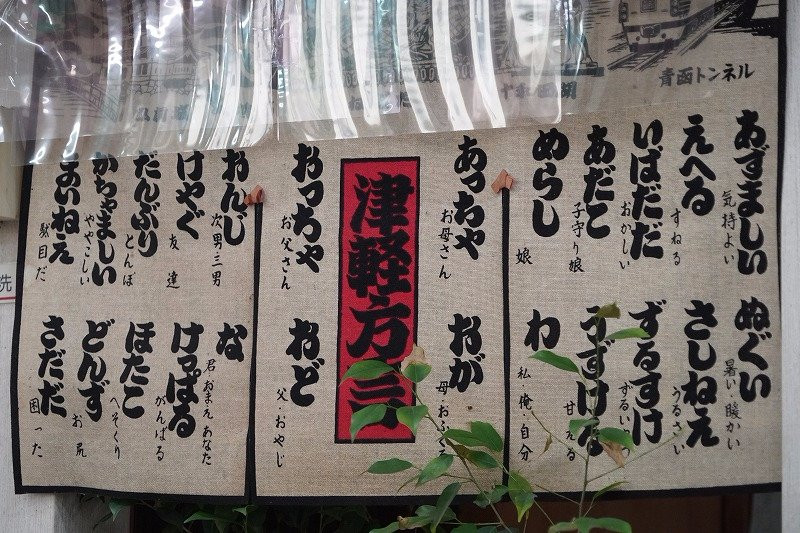 青函トンネル
十和田湖
あずましい
気持よい
えへる
すねる
いばだだ
おかしい
あだこ
子守り娘
めらし
娘
ぬぐい
暑い 暖かい
さしねえ
うるさい
ずるすけ
甘える
わ
私・俺・自分
あっちゃ
お母さん
おが
母・おふくろ
津軽方言
おっちゃ
お父さん
おど
父・おやじ
おんじ
次男三男
けやぐ
友達
だんぶり
とんぼ
かちゃましい
ややこしい
まいねえ
駄目だ
な
君 おまえ あなた
けっぱる
がんばる
ほたこ
へそくり
どんず
お尻
さだだ
困った
洗